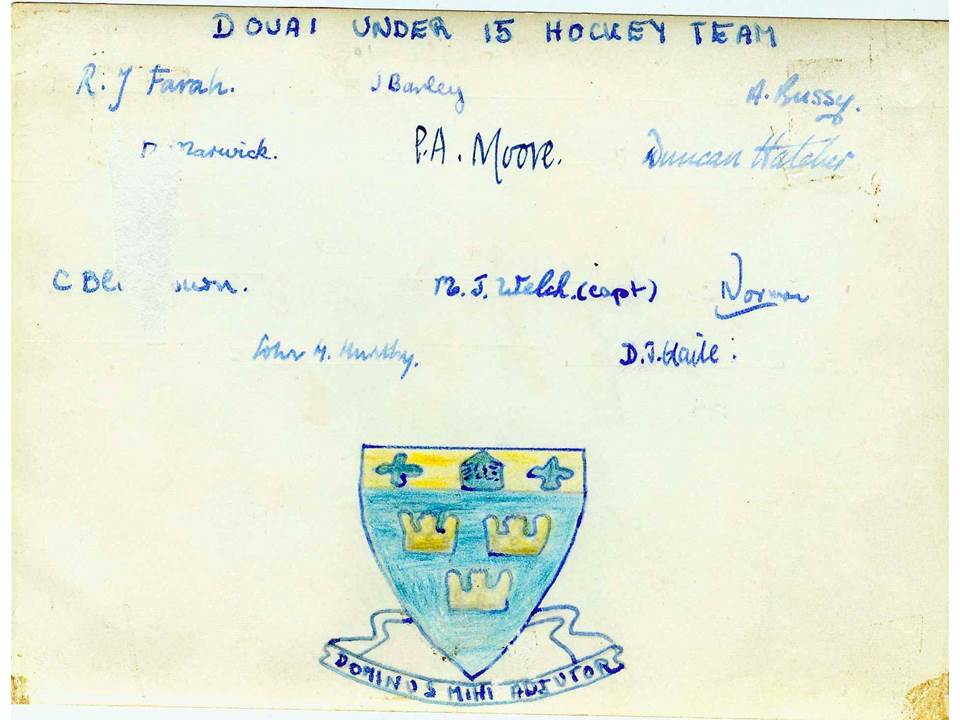 DOUAI UNDER 15 HOCKEY TEAM
R. J Farah. J Barley A. Bussy.
Marwick. P.A. Moore. Duncan Hatcher
C M. J. Welch. (capt) Norman
John M. D. J. Haile.
DOMINUS MIHI ADJUTOR